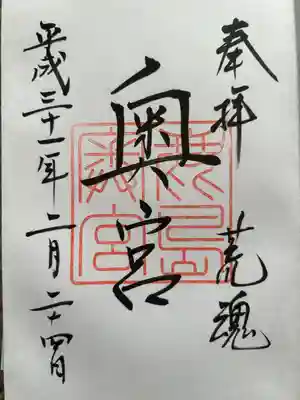 奉拝 荒魂
奥宮
平成三十一年二月二十四日
鹿島奥宮